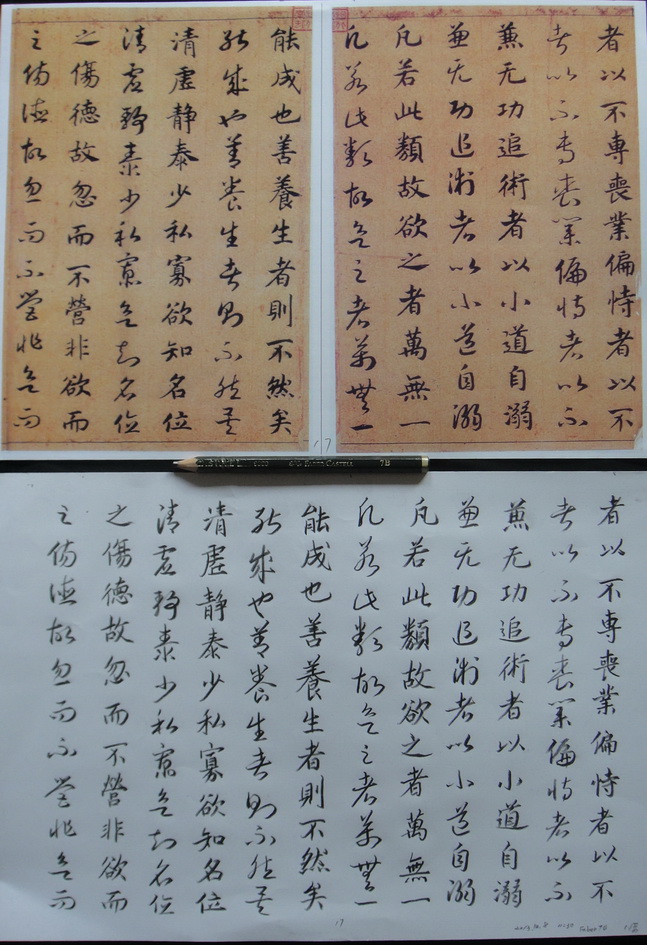 者以不專喪業偏恃者以不
者以不專喪業偏恃者以不
兼无功追術者以小道自溺
兼无功追術者以小道自溺
凡若此類故欲之者萬無一
凡若此類故欲之者萬無一
能成也善養生者則不然矣
能成也善養生者則不然矣
清虛靜泰少私寡欲知名位
清虛靜泰少私寡欲知名位
之傷德故忽而不營非欲而
之傷德故忽而不營非欲而
17
FABER-CASTELL 7B
者以不專喪業偏恃者以不
者以不專喪業偏恃者以不
兼无功追術者以小道自溺
兼无功追術者以小道自溺
凡若此類故欲之者萬無一
凡若此類故欲之者萬無一
能成也善養生者則不然矣
能成也善養生者則不然矣
清虛靜泰少私寡欲知名位
清虛靜泰少私寡欲知名位
之傷德故忽而不營非欲而
之傷德故忽而不營非欲而
17